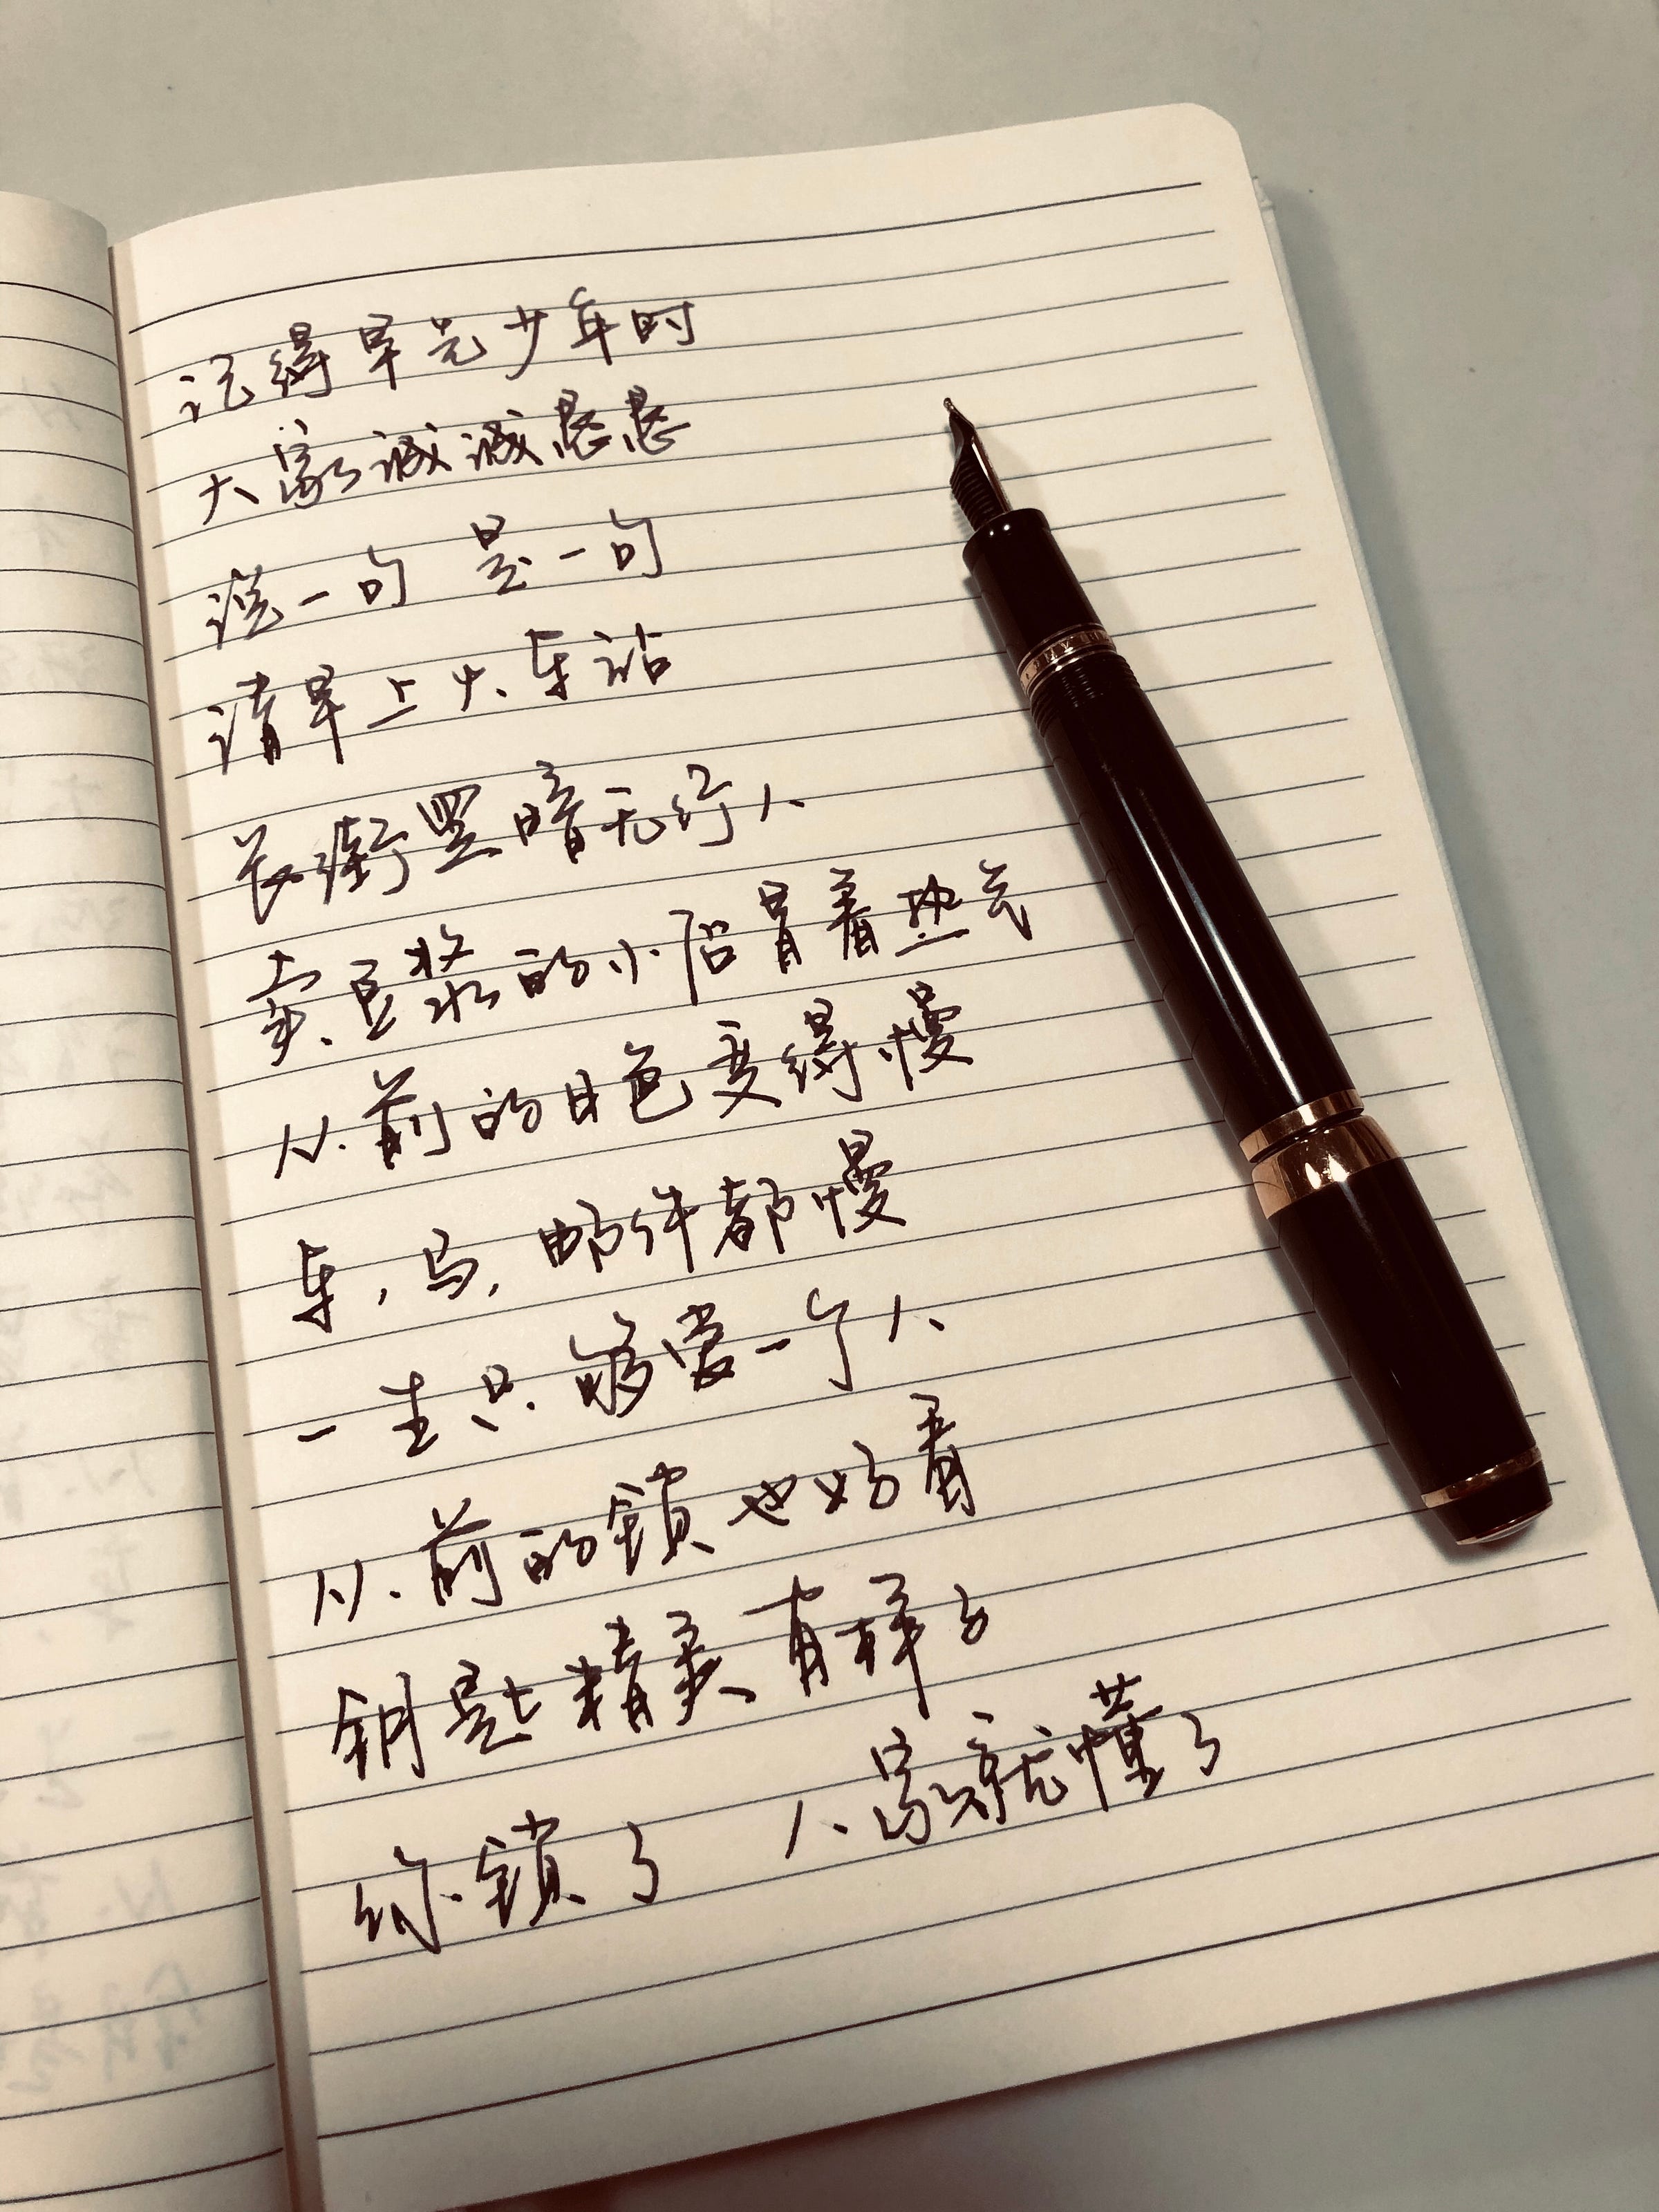 记得早先少年时
大家诚诚恳恳
说一句 是一句
清早上火车站
长街黑暗无行人
卖豆浆的小店冒着热气
从前的日色变得慢
车，马，邮件都慢
一生只够爱一个人
从前的鎖也好看
钥匙精美有样子
你鎖了 人家就懂了